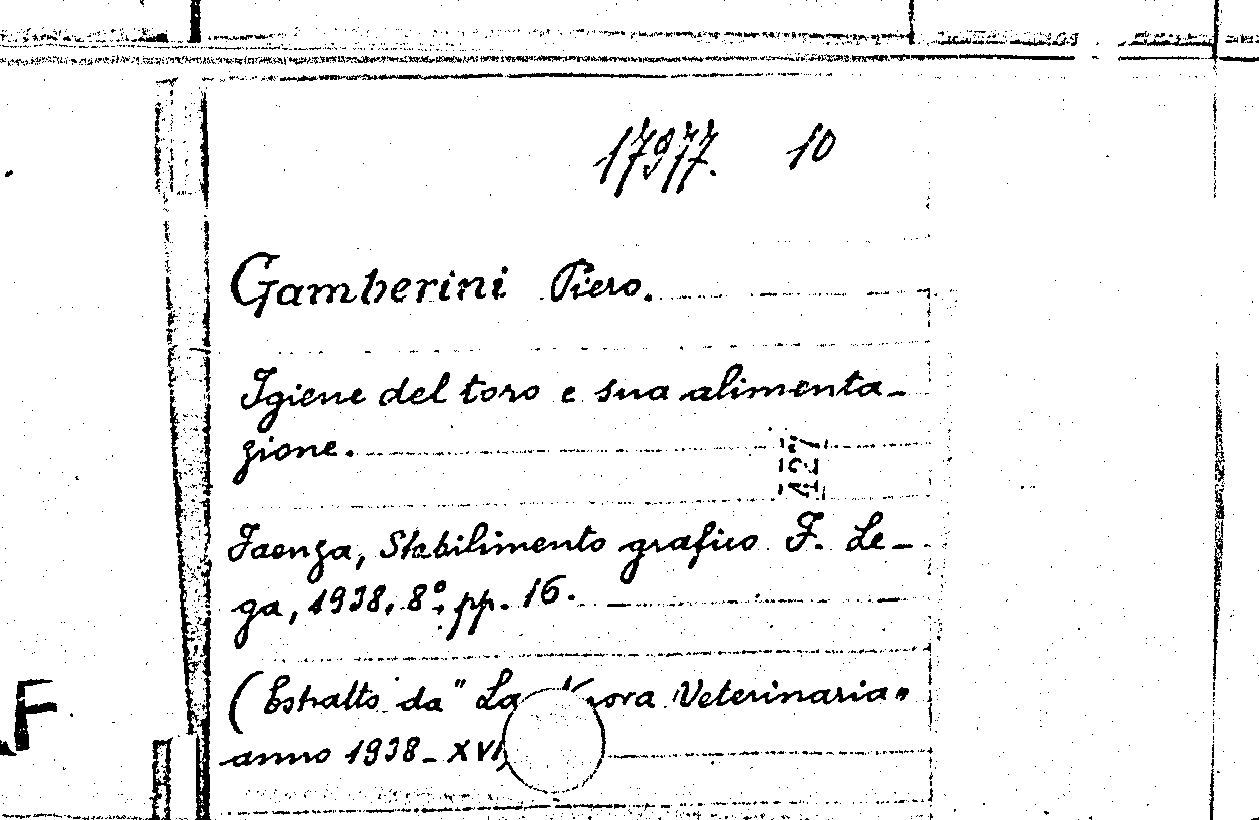 17977. 10
Gamberini Piero.
Igiene del toro e sua alimenta-
zione.
427
Faenza, Stabilimento grafico F. Le-
ga, 1938, 8°, pp. 16.
(Estratto da "La Nuova Veterinaria"
anno 1938-XVI)
F